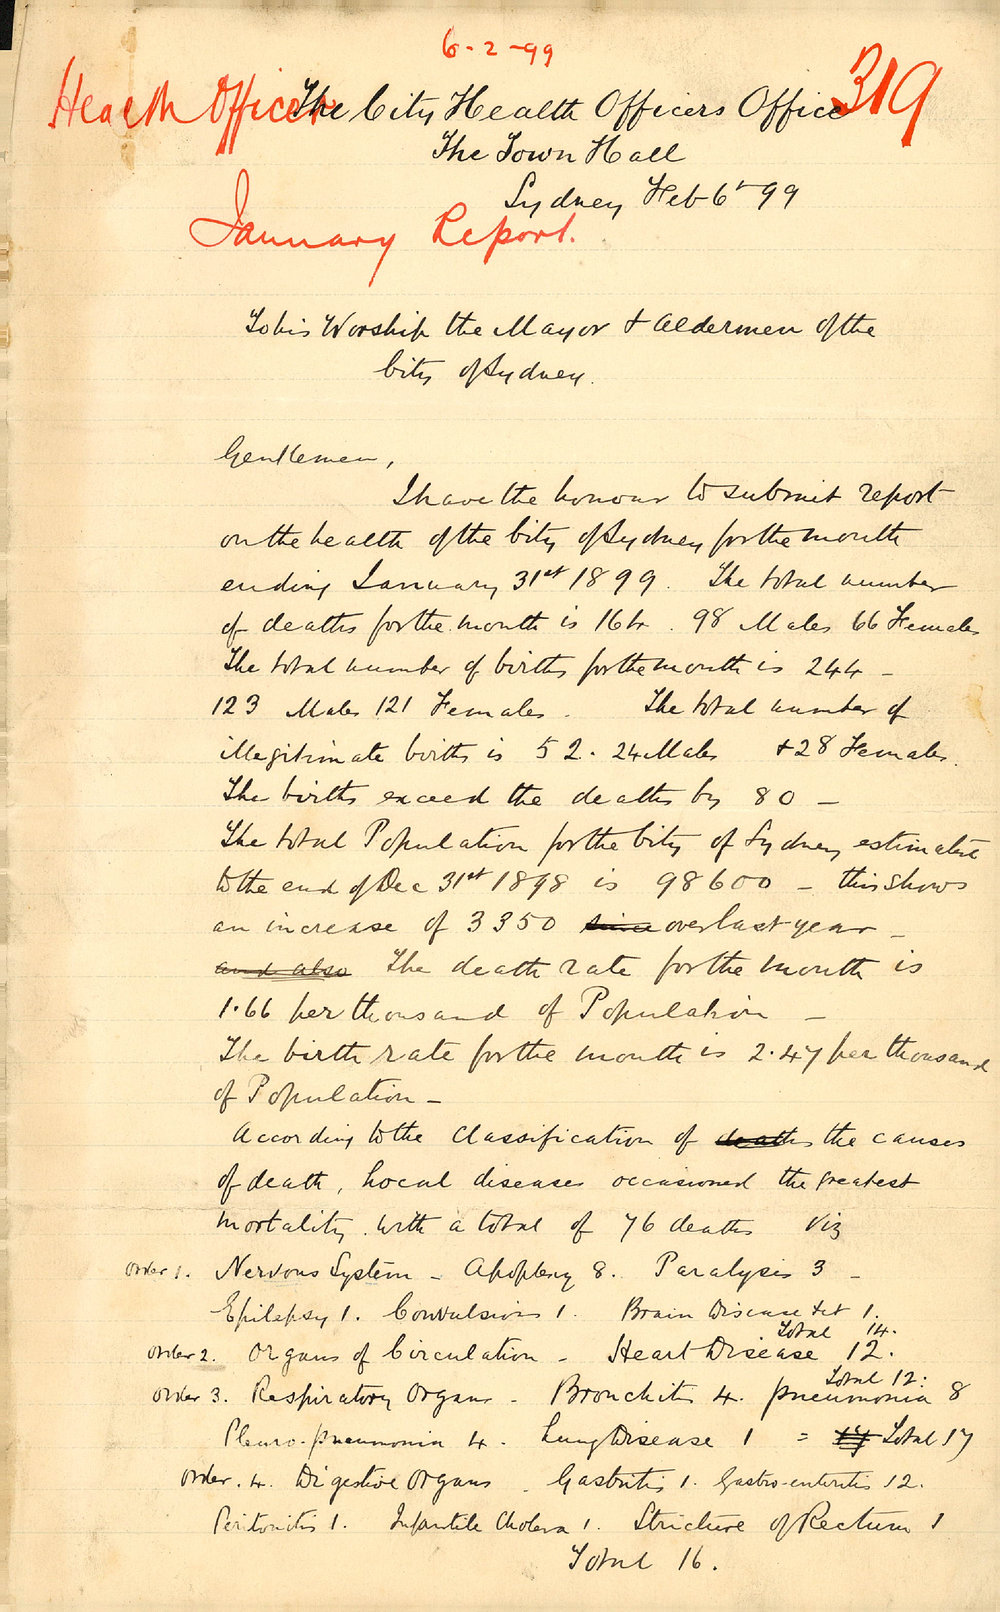 6-2-99
Health Officer The City Health Officers Office 319
The Town Hall
Sydney Feb 6th 99
January Report.
To his Worship the Mayor & Aldermen of the
City of Sydney.
Gentlemen,
I have the honour to submit report
on the health of the City of Sydney for the month
ending January 31st 1899. The total number
of deaths for the month is 164. 98 Males 66 Females
The total number of births for the month is 244 -
123 Males 121 Females. The total number of
illegitimate births is 52. 24 Males & 28 Females.
The births exceed the deaths by 80 -
The total Population for the City of Sydney estimated
to the end of Dec 31st 1898 is 98600 - this shows
an increase of 3350 since over last year -
and also The death rate for the month is
1.66 per thousand of Population -
The birth rate for the month is 2.47 per thousand
of Population -
According to the Classification of deaths the causes
of death, Local diseases occasioned the greatest
mortality. with a total of 76 deaths Viz
Order 1. Nervous System - Apoplexy 8. Paralysis 3 -
Epilepsy 1. Convulsions 1. Brain Disease &c 1.
Total 14.
Order 2. Organs of Circulation - Heart Disease 12.
Total 12.
Order 3. Respiratory Organs - Bronchitis 4. pneumonia 8
Pleuro-pneumonia 4. Lung Disease 1 = 17 Total 17
Order. 4. Digestive Organs. Gastritis 1. Gastro-enteritis 12.
Peritonitis 1. Infantile Cholera 1. Stricture of Rectum 1
Total 16.